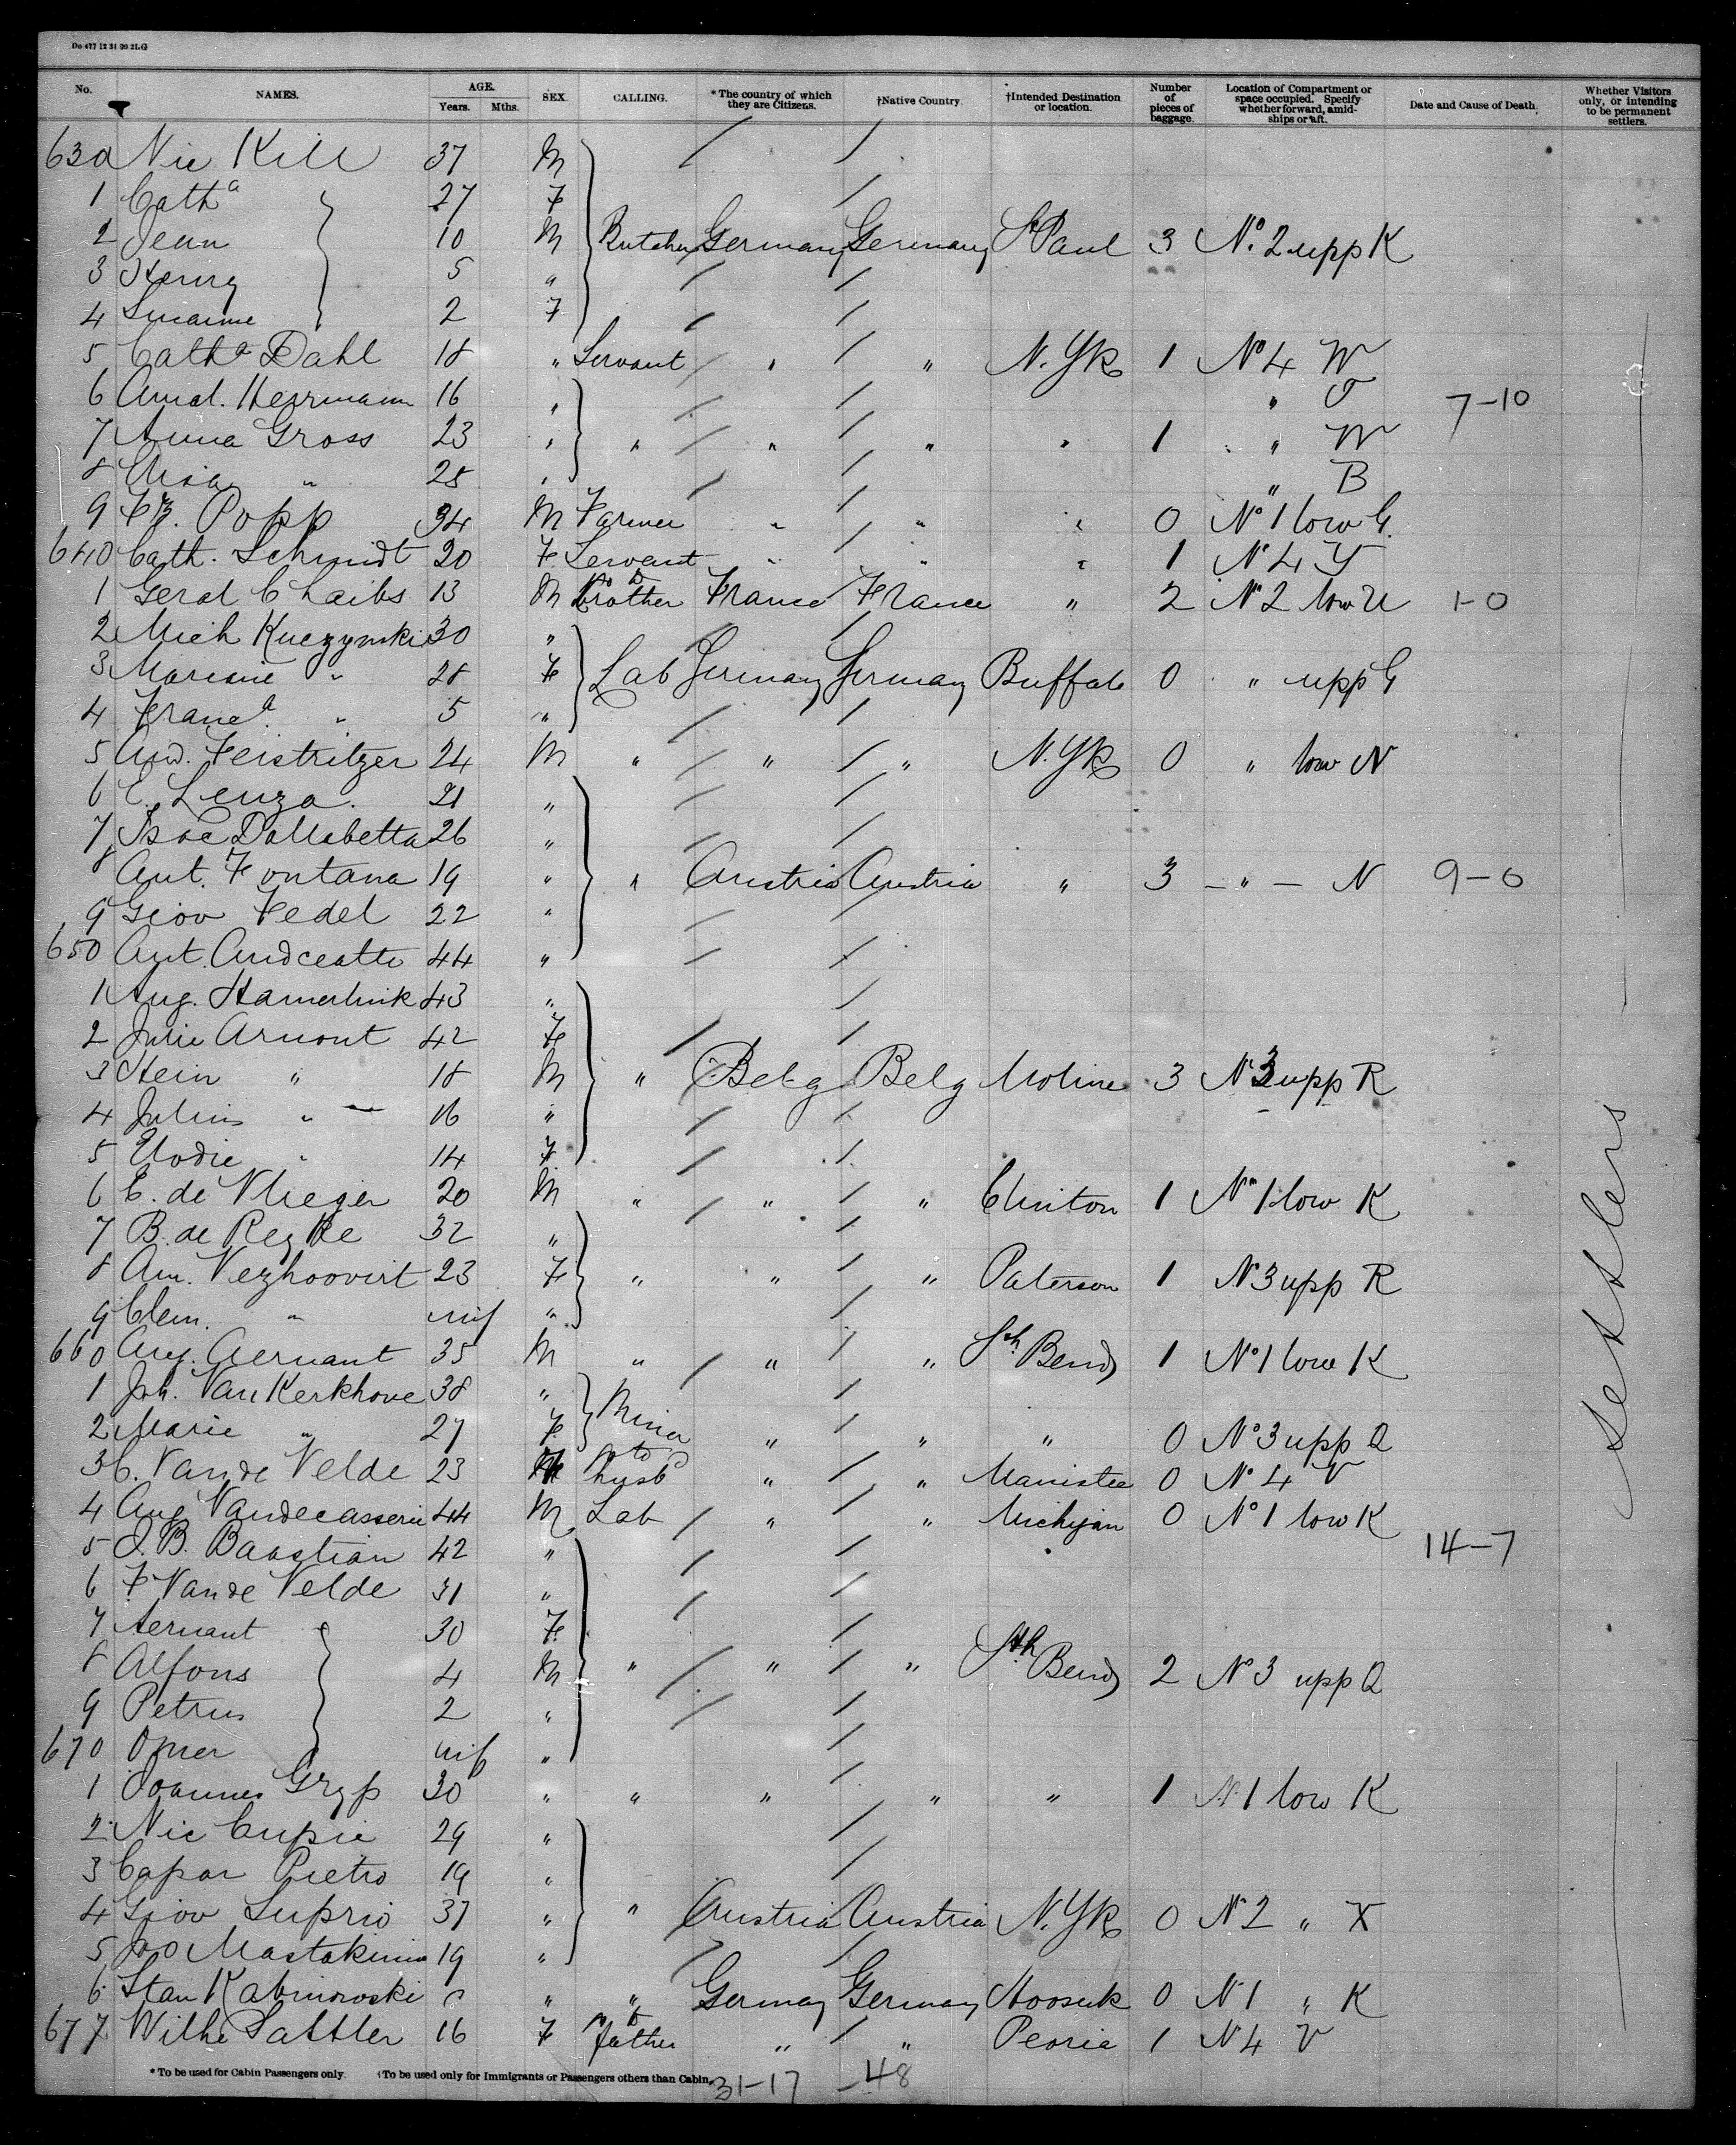 Do 477 12 31 90 2LG
No. NAMES. AGE. Years. Mths. SEX. CALLING. *The country of which they are Citizens. †Native Country. †Intended Destination or location. Number of pieces of baggage. Location of Compartment or space occupied. Specify whether forward, amidships or aft. Date and Cause of Death. Whether Visitors only, or intending to be permanent settlers.
630 Nic Kill 37 M
1 Cathª 27 F
2 Jean 10 M Butcher Germany Germany St Paul 3 No. 2 upp K
3 Henry 5 "
4 2 F
5 Cathª Dahl 18 " Servant " " N. Yk 1 No 4 W
6 Amal. Herrmann 16 " "
7-10
7 Anna Gross 23 " " " " " 1 " W
8 " 25 " " B
9 Popp 34 M Farmer " " " 0 No 1 low G.
640 Cath. Schmidt 20 F Servant " " " 1 No 4 Y
1 Gerol Claibs 13 M to brother France France " 2 No 2 low U 1-0
2 Mich Kuczynski 30 "
3 Marianie " 28 F Lab Germany Germany Buffalo 0 " upp G
4 Francª " 5 "
5 And. Feistritzer 24 M " " " N. Yk 0 " low N
6 C. Lenza. 21 "
7 Dallabetta 26 "
8 Ant. Fontana 19 " " Austria Austria " 3 - " - N 9-0
9 Giov Fedel 22 "
650 Ant. 44 "
1 Aug. Hamerlink 43 "
2 Julie Arnont 42 F
3 Hein " 18 M " Belg Belg Moline 3 No 3 upp R
4 Julius " 16 "
5 Elodie " 14 F
6 E. de Vlieger 20 M " " " Clinton 1 No 1 low K
7 B. de Regke 32 "
8 Am. Vezhoovirt 23 F " " " Paterson 1 No 3 upp R
9 Clem. " inf "
660 Aug. Aernant 35 M " " " Sth Bend 1 No 1 low K
1 Joh. Van Kerkhove 38 "
2 Marie " 27 F Miner " " " 0 No 3 upp Q
3 C. Van de Velde 23 to husb " " Manistee 0 No 4 V
4 Aug. 44 M Lab " " Michigan 0 No 1 low K
14-7
5 J. B. Baastian 42 "
6 F Van de Velde 31 "
7 Aernant 30 F
8 Alfons 4 M " " " Sth Bend 2 No 3 upp Q
9 Petrus 2 "
670 Omer inf "
1 Joannes Gryp 30 " " " " " 1 No 1 low K
2 Nic Cupie 29 "
3 Capar Pietro 19 "
4 Giov Luprio 37 " " Austria Austria N. Yk 0 No 2 " X
5 19 "
6 Stan Kabinowski " " Germany Germany Hoosick 0 No 1 " K
677 Wilhe Sattler 16 F to father " " Peoria 1 No 4 V
settlers
* To be used for Cabin Passengers only. †To be used only for Immigrants or Passengers others than Cabin.
31-17 -48